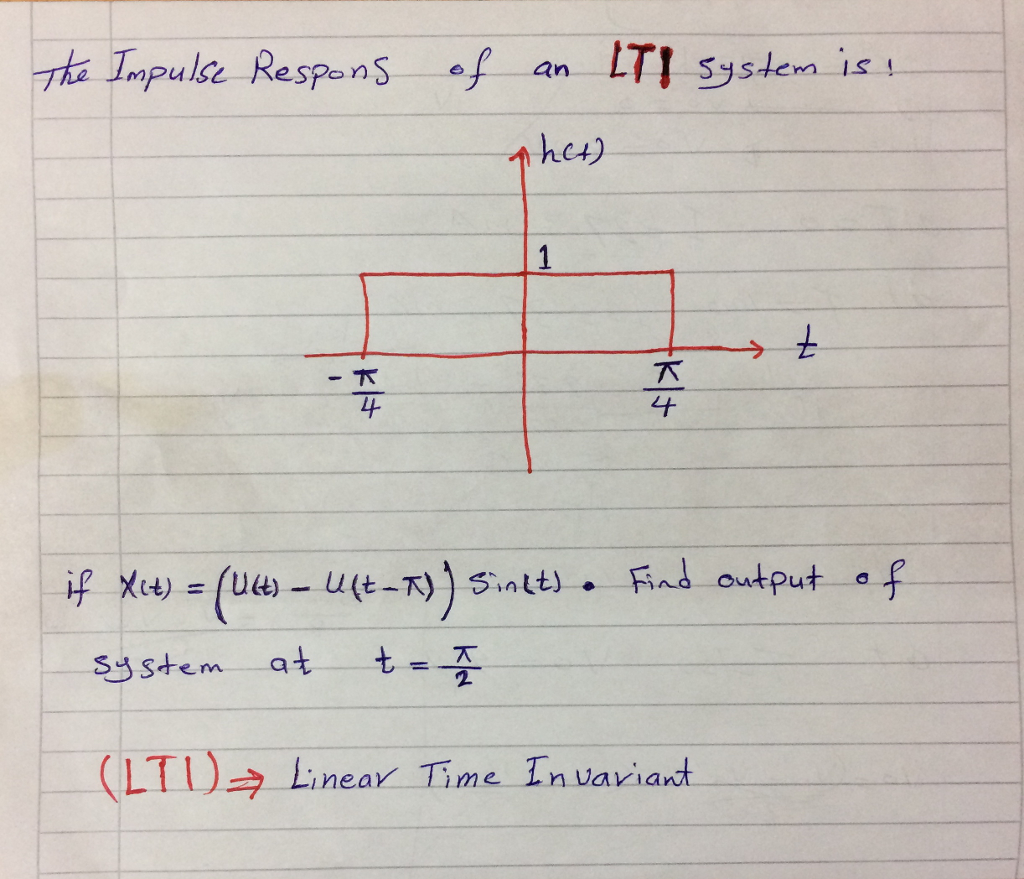 The Impulse Respons of an LTI system is:
h(t)
1
t
-π/4
π/4
if X(t) = (U(t) - U(t-π)) Sin(t). Find output of
system at t = π/2
(LTI) ⇒ Linear Time Invariant